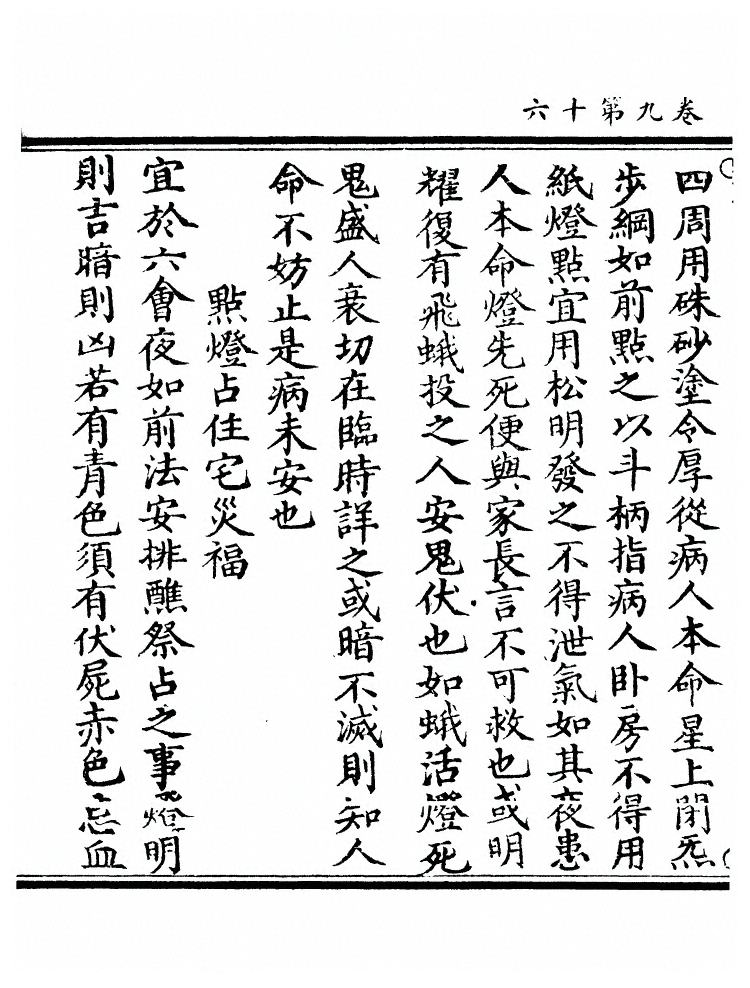 卷九第十六
四周用硃砂塗令厚從病人本命星上閉炁
步綱如前點之以斗柄指病人卧房不得用
紙燈點宜用松明發之不得泄氣如其夜患
人本命燈先死便與家長言不可救也或明
耀復有飛蛾投之人安鬼伏也如蛾活燈死
鬼盛人衰切在臨時詳之或暗不滅則知人
命不妨止是病未安也
點燈占住宅災福
宜於六會夜如前法安排醮祭占之事燈明
則吉暗則凶若有青色須有伏屍赤色忌血